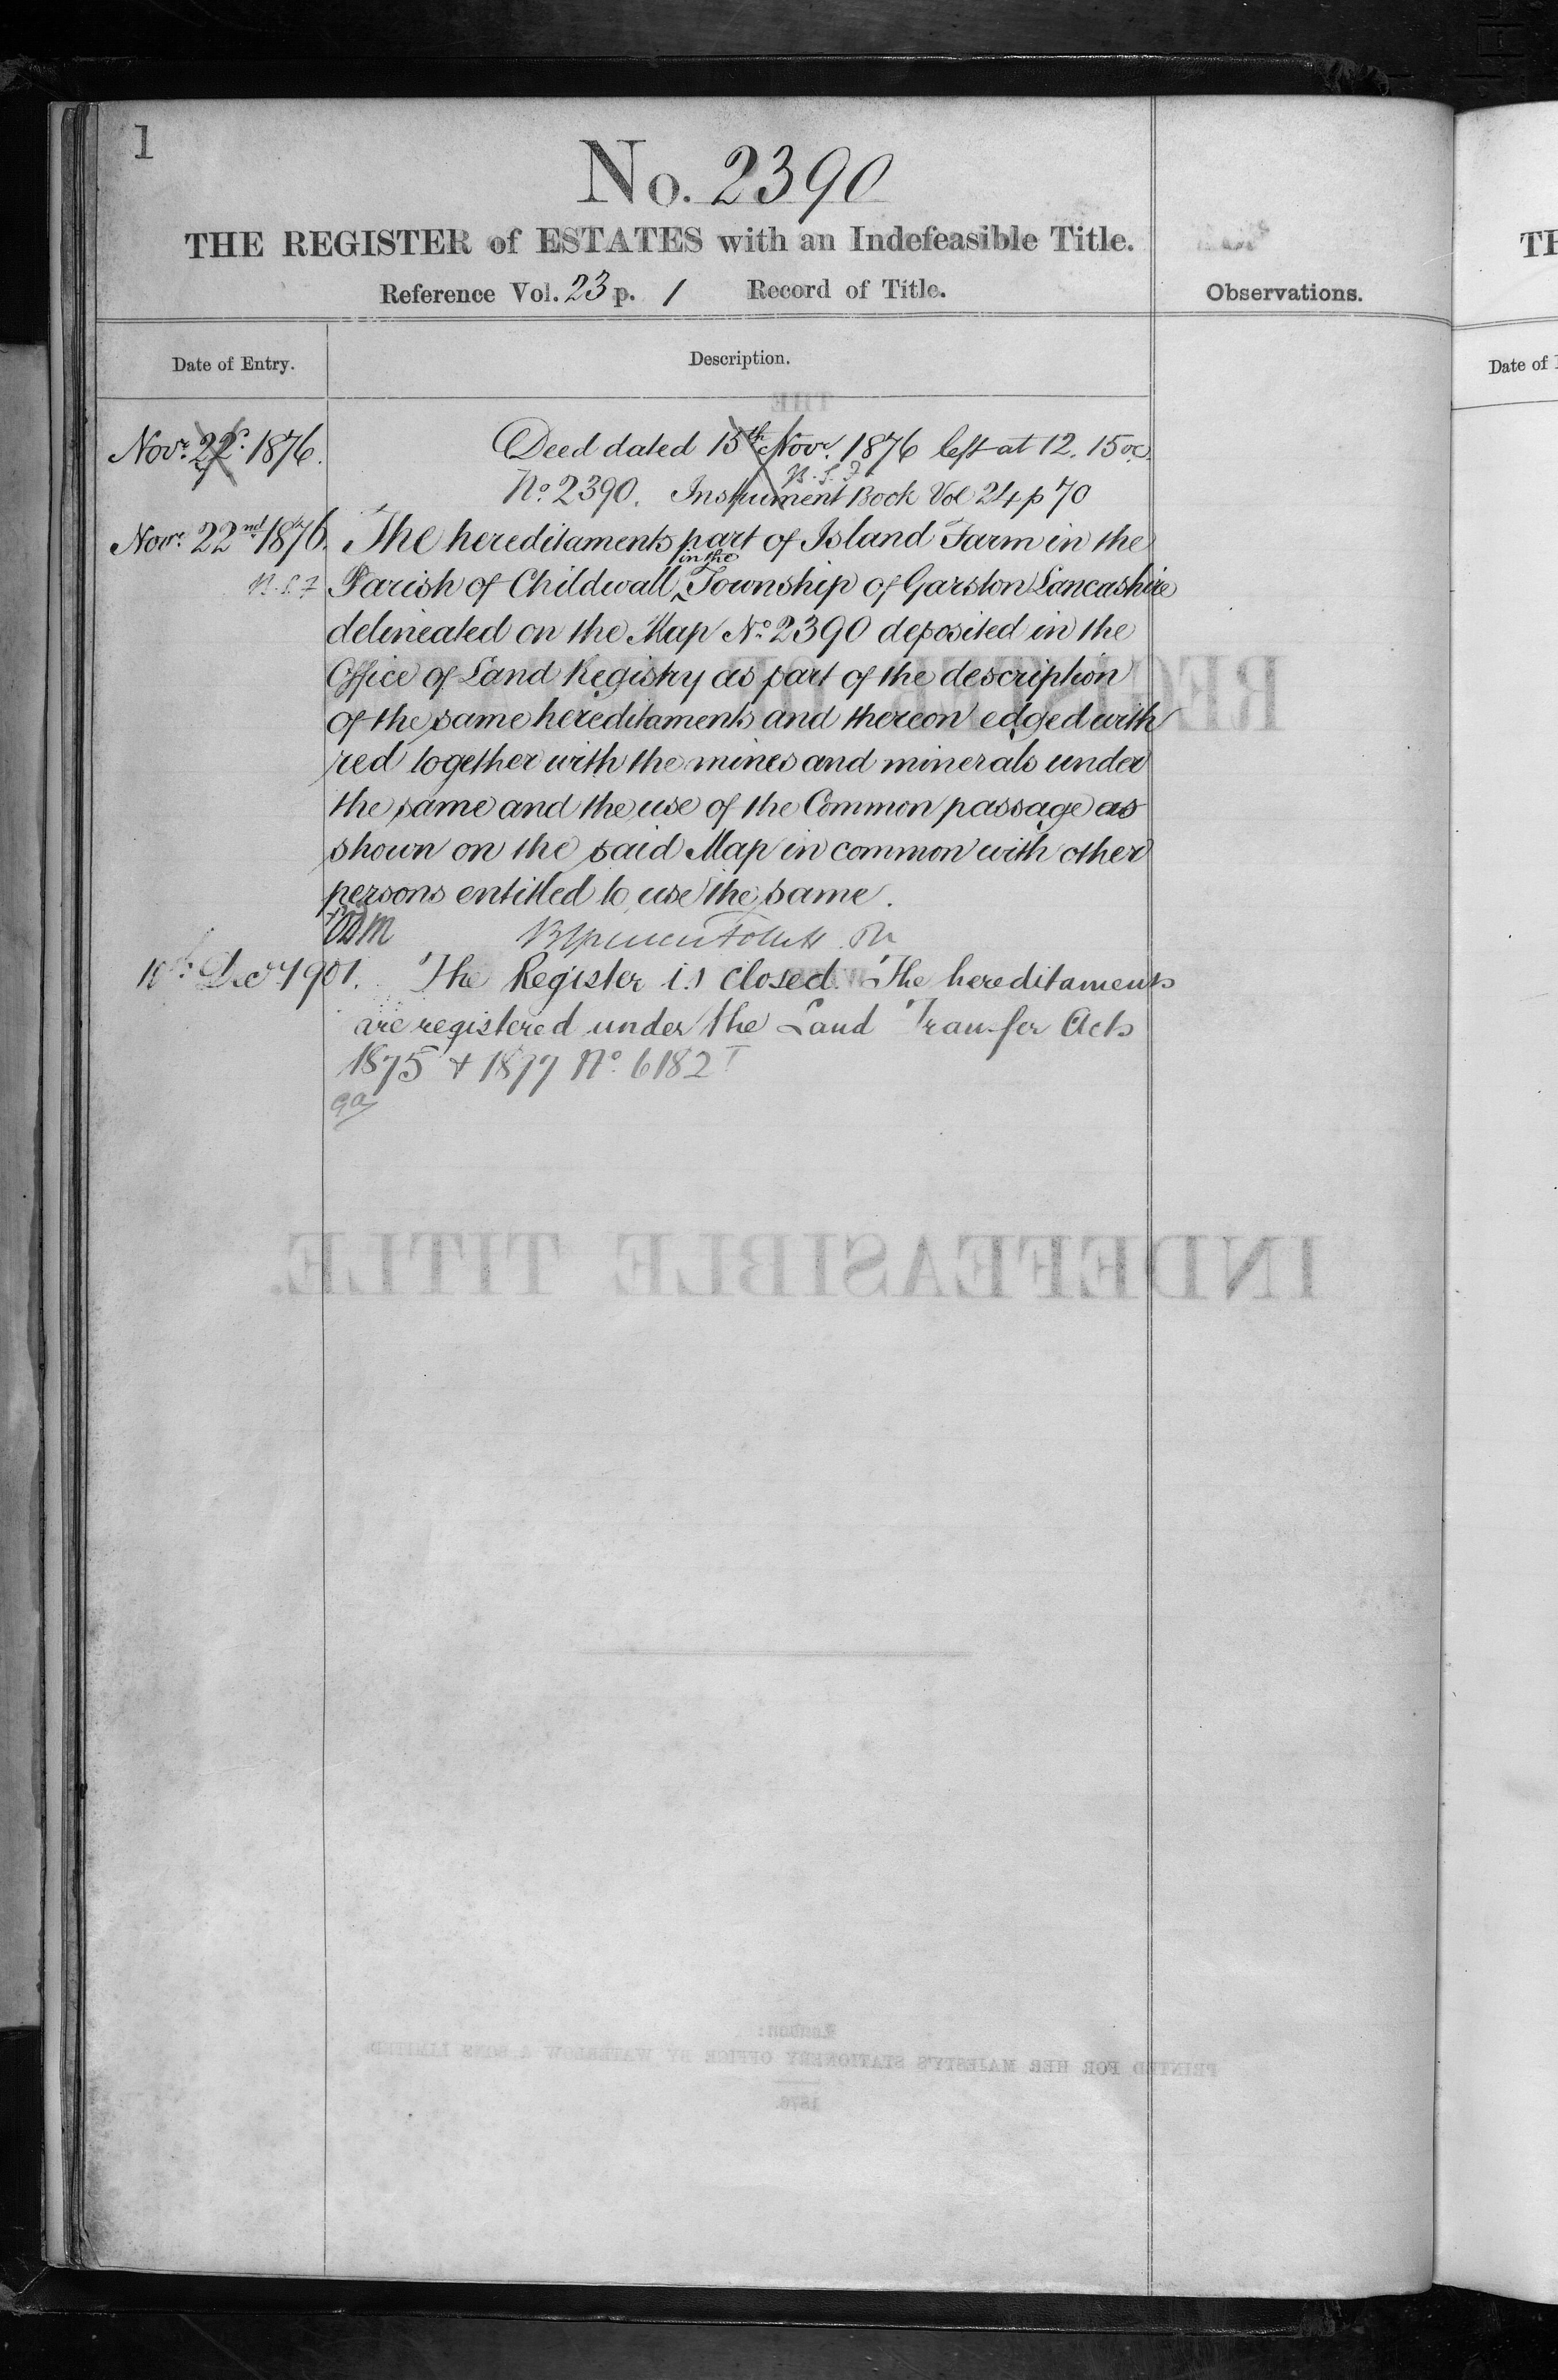 1
No. 2390
THE REGISTER of ESTATES with an Indefeasible Title.
Reference Vol. 23 p. 1 Record of Title.
Observations.
Date of Entry.
Description.
Novr. 22d. 1876. Deed dated 15th Novr. 1876 left at 12.15 oc.
B.S.F.
No. 2390. Instrument Book Vol 24 p 70
Novr. 22nd 1876. The hereditaments part of Island Farm in the
B.S.F. Parish of Childwall in the Township of Garston Lancashire
delineated on the Map No. 2390 deposited in the
Office of Land Registry as part of the description
of the same hereditaments and thereon edged with
red together with the mines and minerals under
the same and the use of the Common passage as
shown on the said Map in common with other
persons entitled to use the same.
10th Decr 1901. The Register is closed. The hereditaments
are registered under the Land Transfer Acts
1875 & 1897 No. 6182
TH
Date of
THE
REGISTER OF
WITH
INDEFEASIBLE TITLE.
London:
PRINTED FOR HER MAJESTY'S STATIONERY OFFICE BY WATERLOW & SONS LIMITED
1876.